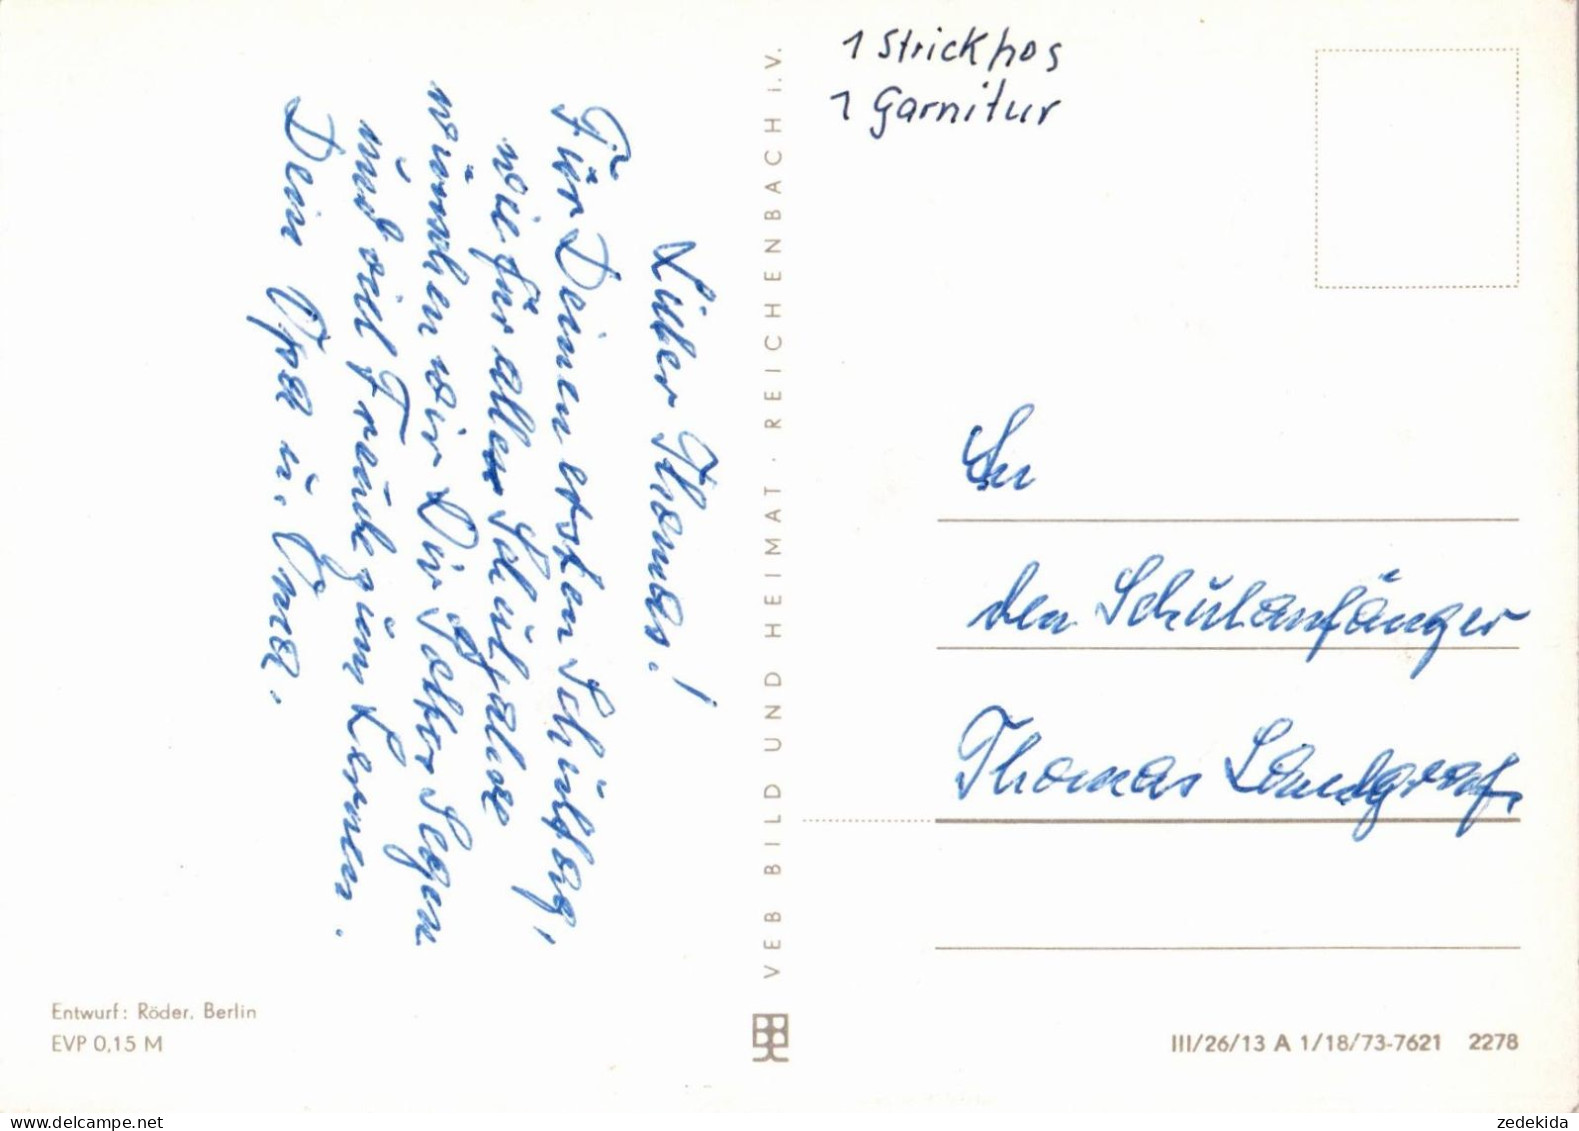 Lieber Thomas!
Für Deinen ersten Schultag,
wie für alle Schuljahre
wünschen wir Dir Gottes Segen
und viel Freude zum Lernen.
Dein Opa u. Oma.
Entwurf: Röder, Berlin
EVP 0,15 M
VEB BILD UND HEIMAT · REICHENBACH i.V.
1 Strickhos
1 Garnitur
An
den Schulanfänger
Thomas Landgraf.
III/26/13 A 1/18/73-7621 2278
zedekida